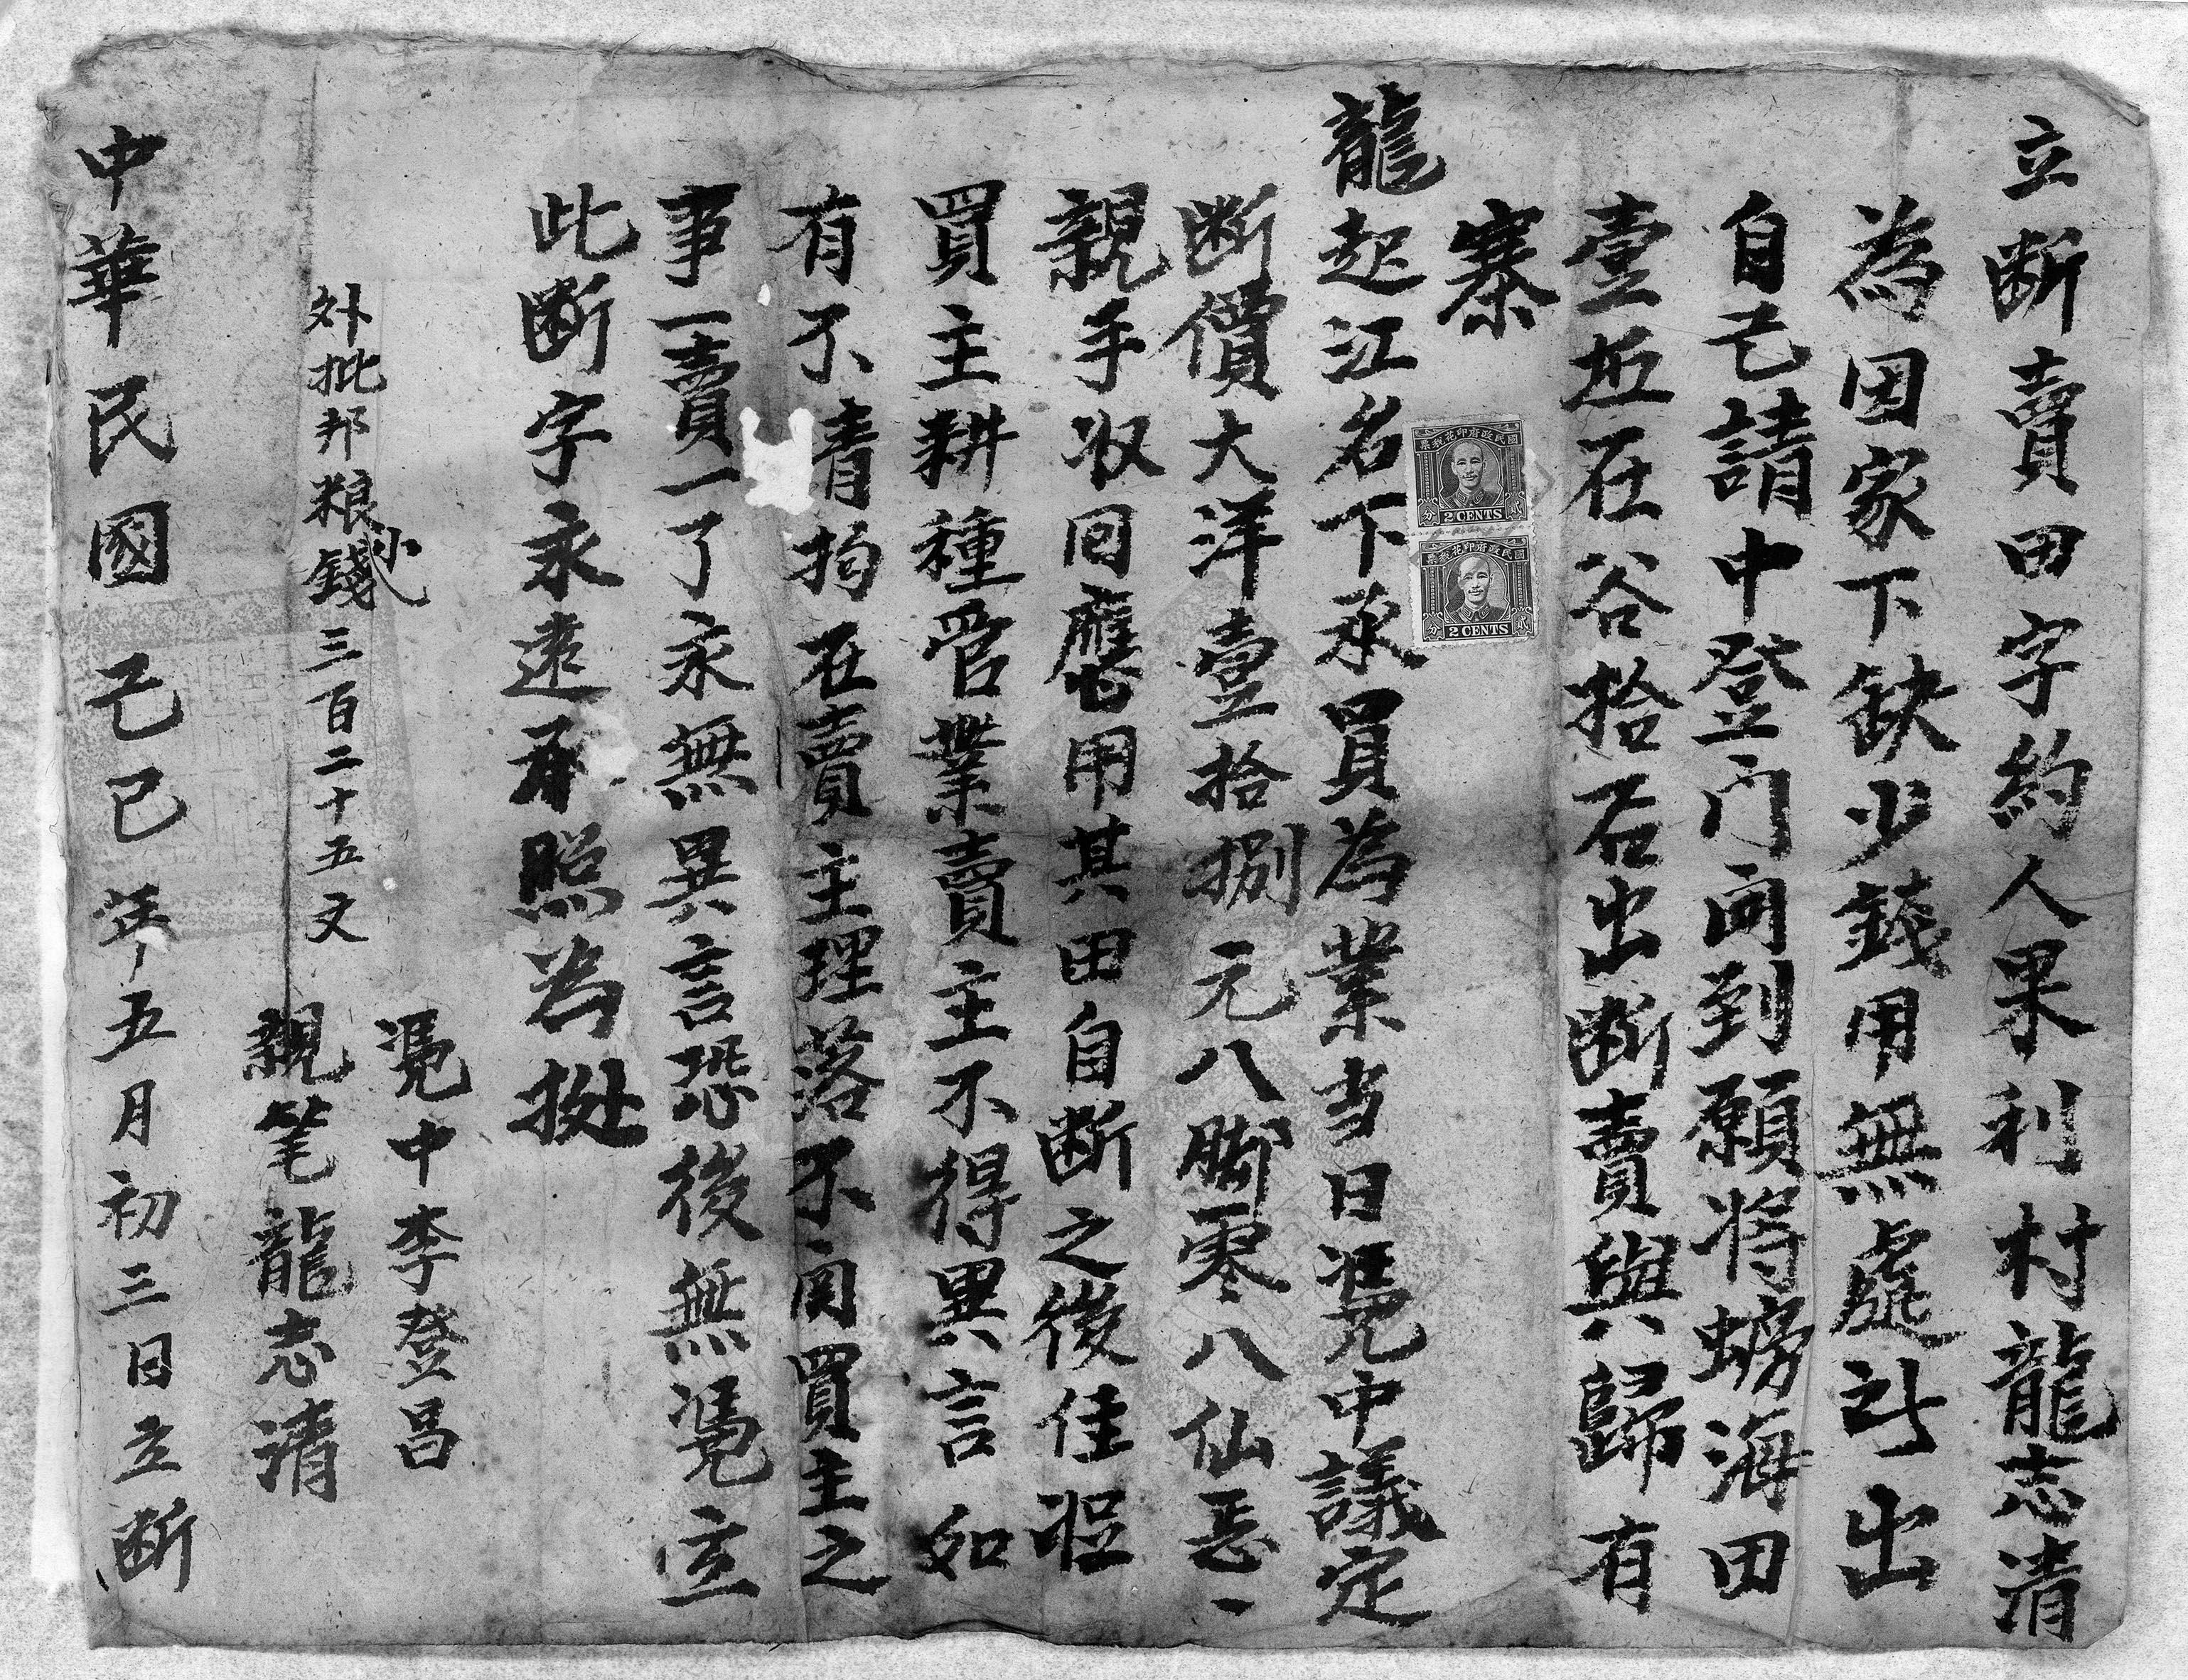 立断賣田字約人果利村龍志清
為因家下缺少錢用無處計出
自己請中登门問到願将螃海田
壹坵在谷拾石出断賣與歸有
寨
龍起江名下承買為業当日憑中議定
断價大洋壹拾捌元八脚零八仙
親手收回應用其田自断之後任從
買主耕種管業賣主不得異言如
有不清拘在賣主理落不関買主之
事一賣一了永無異言恐後無憑立
此断字永遠承照為拠
外批邦粮小錢三百二十五文
憑中李登昌
親笔龍志清
中華民國己巳年五月初三日立断
國民政府印花稅票
分 2 CENTS 貳
國民政府印花稅票
分 2 CENTS 貳